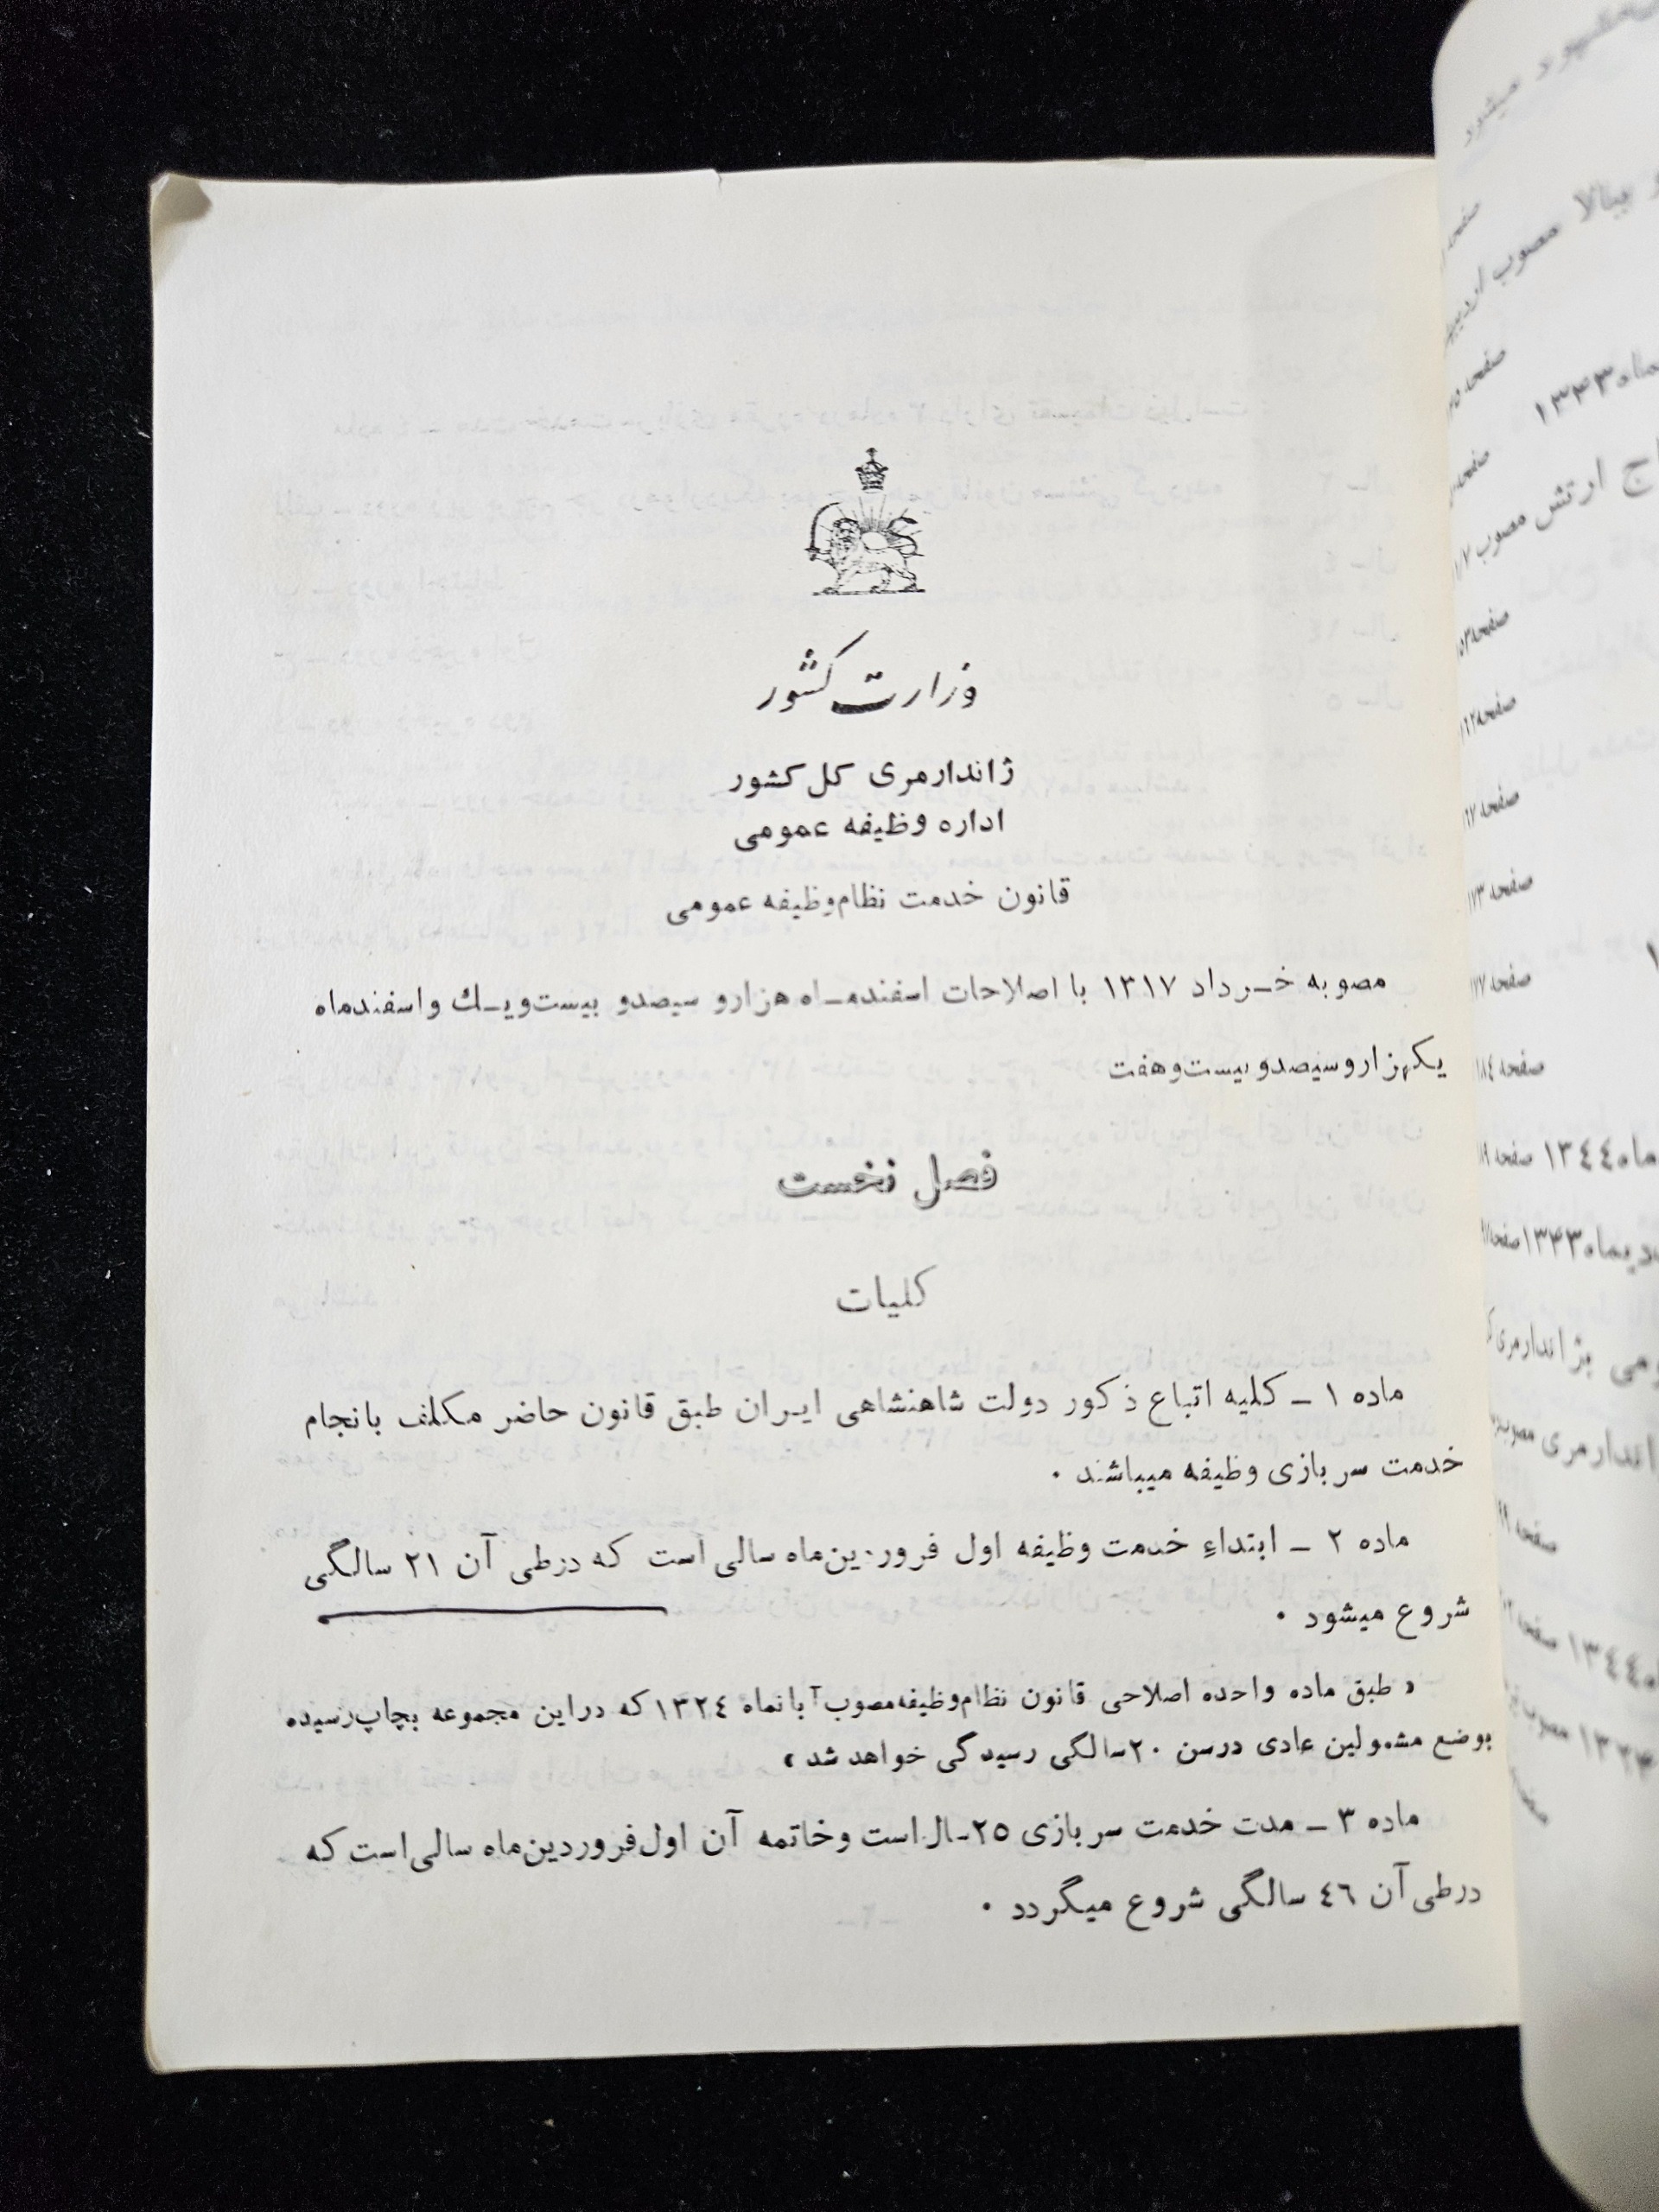 وزارت کشور
ژاندارمری کل کشور
اداره وظیفه عمومی
قانون خدمت نظام وظیفه عمومی
مصوبه خـرداد ۱۳۱۷ با اصلاحات اسفندمـاه هزارو سیصدو بیست‌ویـك واسفندماه
یکهزاروسیصدو بیست‌وهفت
فصل نخست
کلیات
ماده ۱ ـ کلیه اتباع ذکور دولت شاهنشاهی ایـران طبق قانون حاضر مکلف بانجام
خدمت سربازی وظیفه میباشند ۰
ماده ۲ ـ ابتداءِ خدمت وظیفه اول فروردین‌ماه سالی است که درطی آن ۲۱ سالگی
شروع میشود ۰
« طبق ماده واحده اصلاحی قانون نظام‌وظیفه‌مصوب آبانماه ۱۳۲٤ که دراین مجموعه بچاپ‌رسیده
بوضع مشمولین عادی درسن ۲۰سالگی رسیدگی خواهد شد »
ماده ۳ ـ مدت خدمت سربازی ۲٥سال‌است وخاتمه آن اول‌فروردین‌ماه سالی‌است که
درطی آن ٤٦ سالگی شروع میگردد ۰
میشود
بیالا مصوب
صفحه
۱۳۴۳
ارتش مصوب
صفحه
صفحه
صفحه
صفحه
صفحه
صفحه
ماه ۱۳٤٤ صفحه
دیماه ۱۳۴۳ صفحه
بژاندارمری
صفحه
۱۳٤٤ صفحه